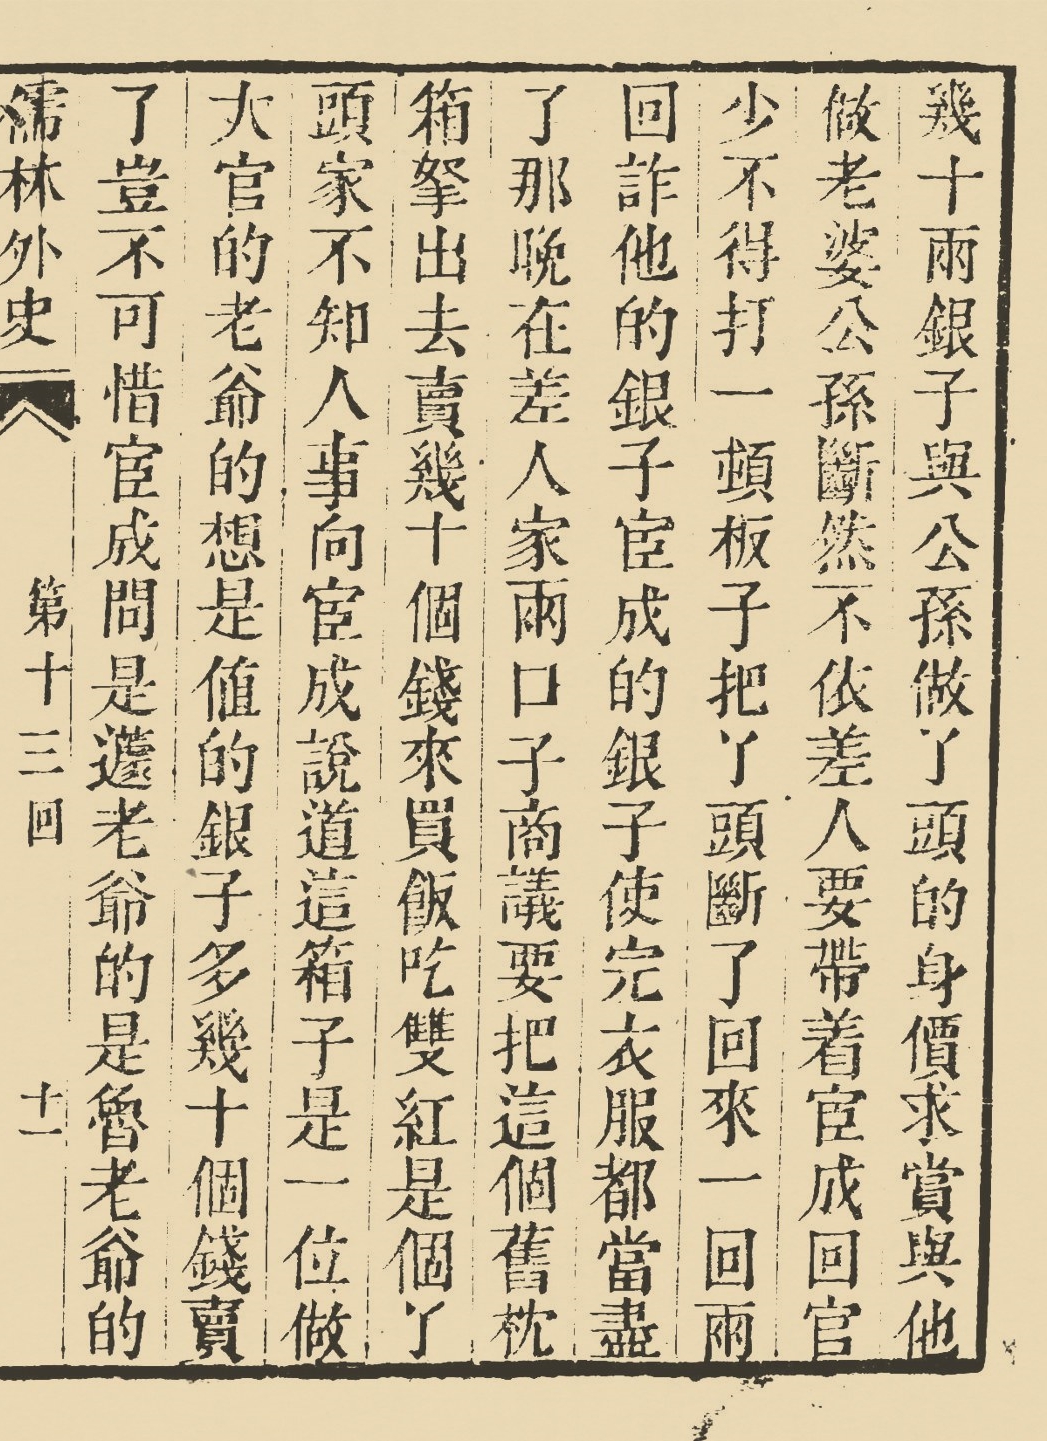 幾十兩銀子與公孫做丫頭的身價求賞與他
做老婆公孫斷然不依差人要帶着宦成回官
少不得打一頓板子把丫頭斷了回來一回兩
回詐他的銀子宦成的銀子使完衣服都當盡
了那晚在差人家兩口子商議要把這個舊枕
箱拏出去賣幾十個錢來買飯吃雙紅是個丫
頭家不知人事向宦成說道這箱子是一位做
大官的老爺的想是值的銀子多幾十個錢賣
了豈不可惜宦成問是蘧老爺的是魯老爺的
儒林外史 第十三回 十一